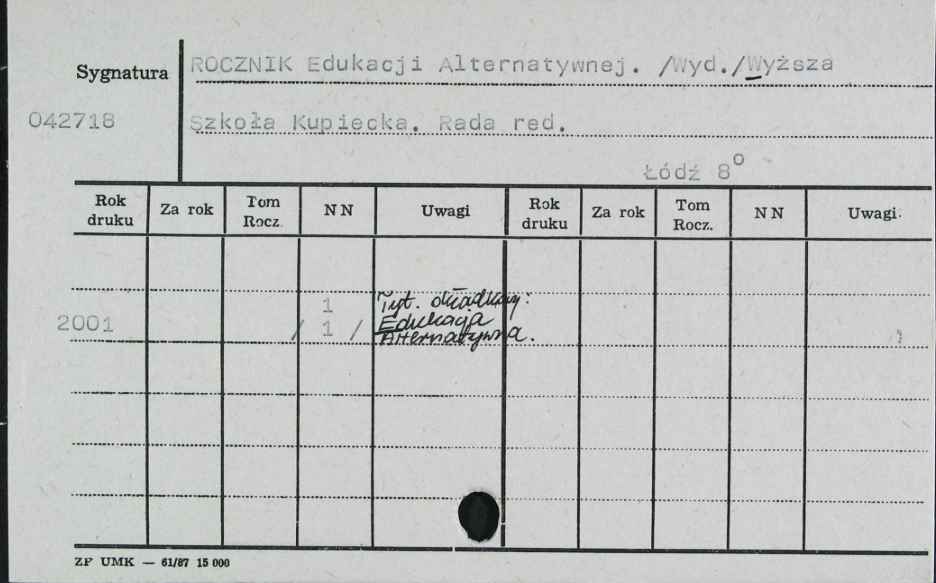 Sygnatura ROCZNIK Edukacji Alternatywnej. /Wyd./Wyższa
042718 Szkoła Kupiecka. Rada red.
Łódź 8°
Rok druku Za rok Tom Rocz. NN Uwagi Rok druku Za rok Tom Rocz. NN Uwagi
1 Tyt. okładkowy:
2001 / 1 / Edukacja
Alternatywna.
ZP UMK — 61/87 15 000